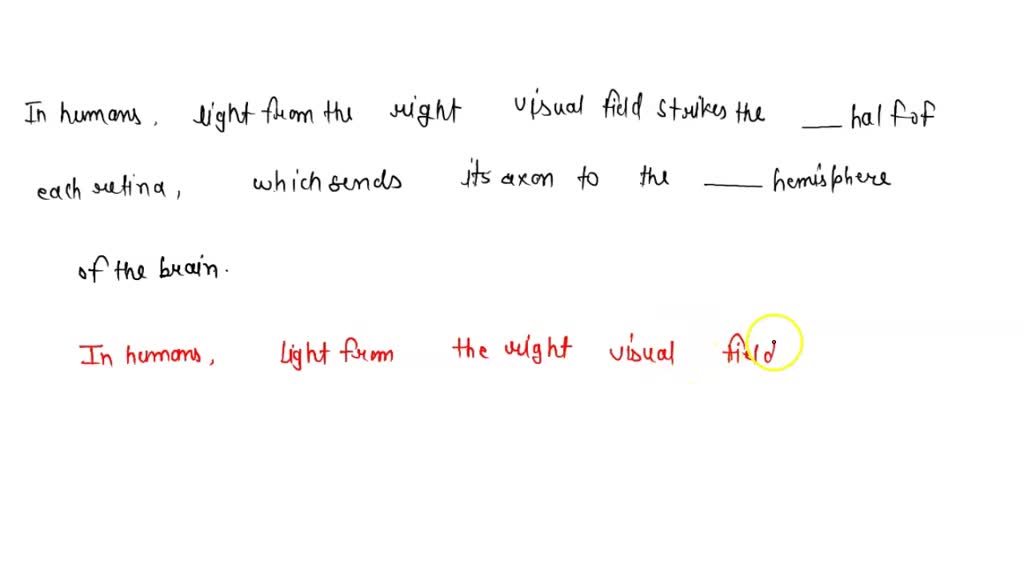 In humans, light from the right visual field strikes the ___ half of
each retina, which sends its axon to the ___ hemisphere
of the brain.
In humans, light from the right visual field